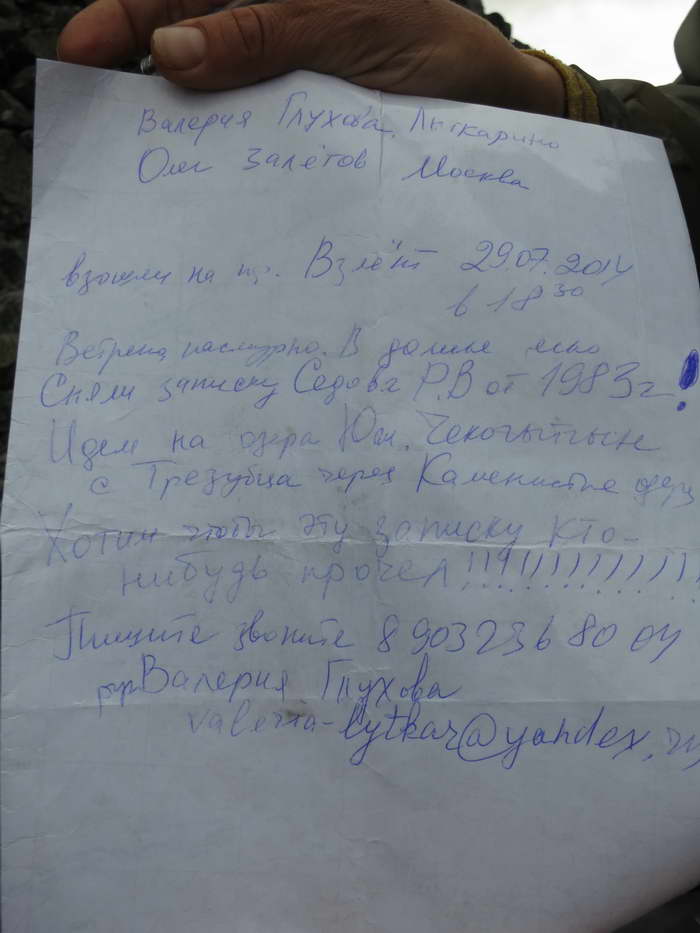 Валерия Глухова, Лыткарино
Олег Залётов Москва
взошли на пер. Взлёт 29.07.2014
в 18 30
Ветрено, пасмурно. В долине ясно
Сняли записку Седова Р.В от 1983г!
Идем на озера Юж.
с Трезубца через Каменистые озера
Хотим чтобы эту записку кто-
нибудь прочел!!!!!!!!!!!!!
Пишите звоните 8 903 236 80 04
Валерия Глухова
valeria-lytkar@yandex.ru